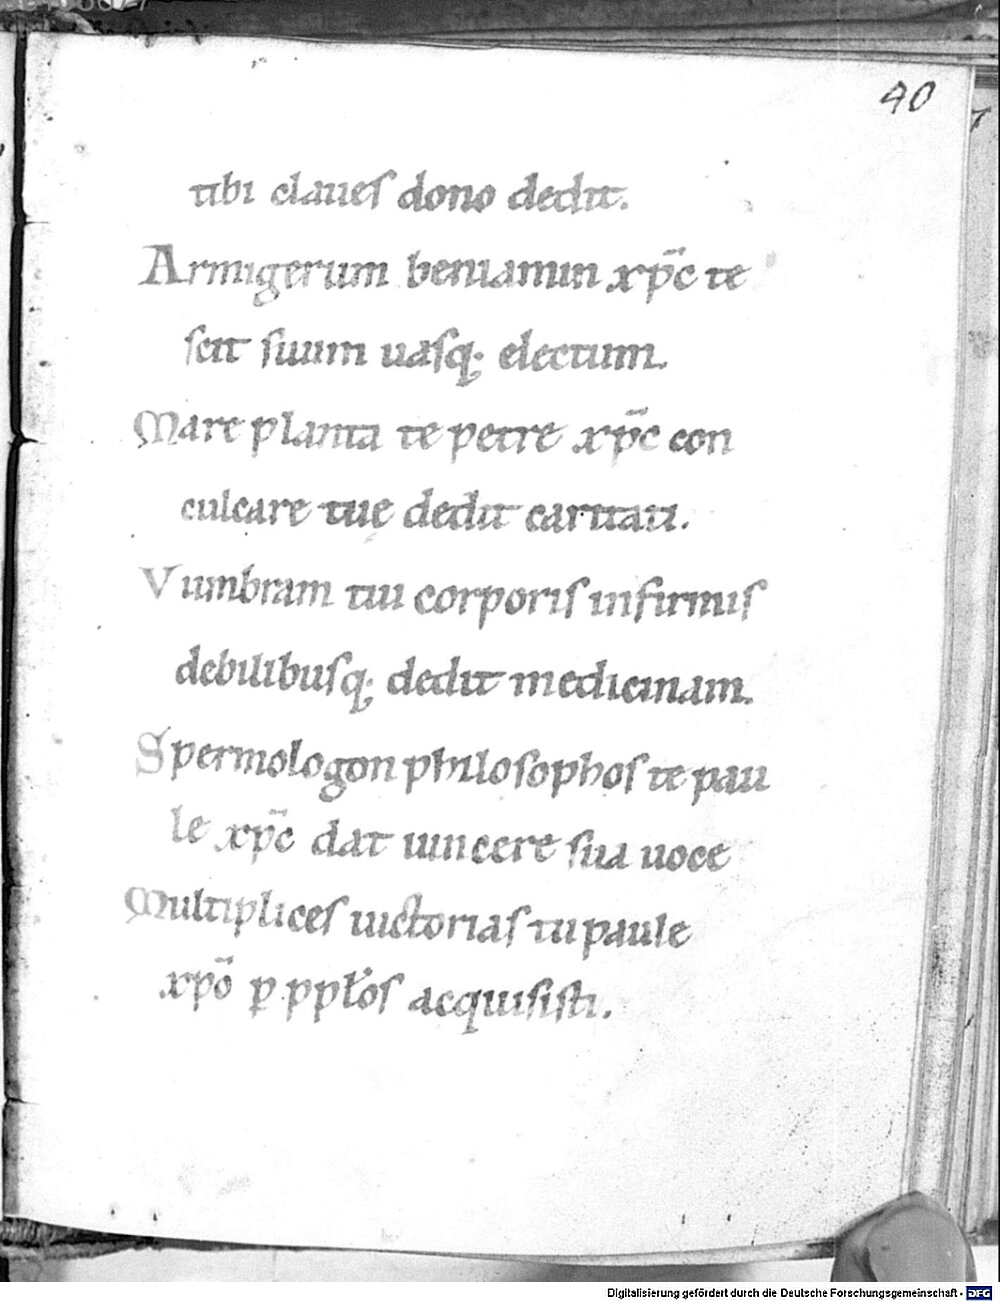 40
tibi claues dono dedit.
Armigerum beniamin xp̄c te
fecit suum uasq; electum.
Mare planta te petre xp̄c con
culcare tuę dedit caritati.
V umbram tui corporis infirmis
debilibusq; dedit medicinam.
Spermologon philosophos te pau
le xp̄c dat uincere sua uoce
Multiplices uictorias tu paule
xp̄o p̱ ppłos acquisisti.
Digitalisierung gefördert durch die Deutsche Forschungsgemeinschaft - DFG